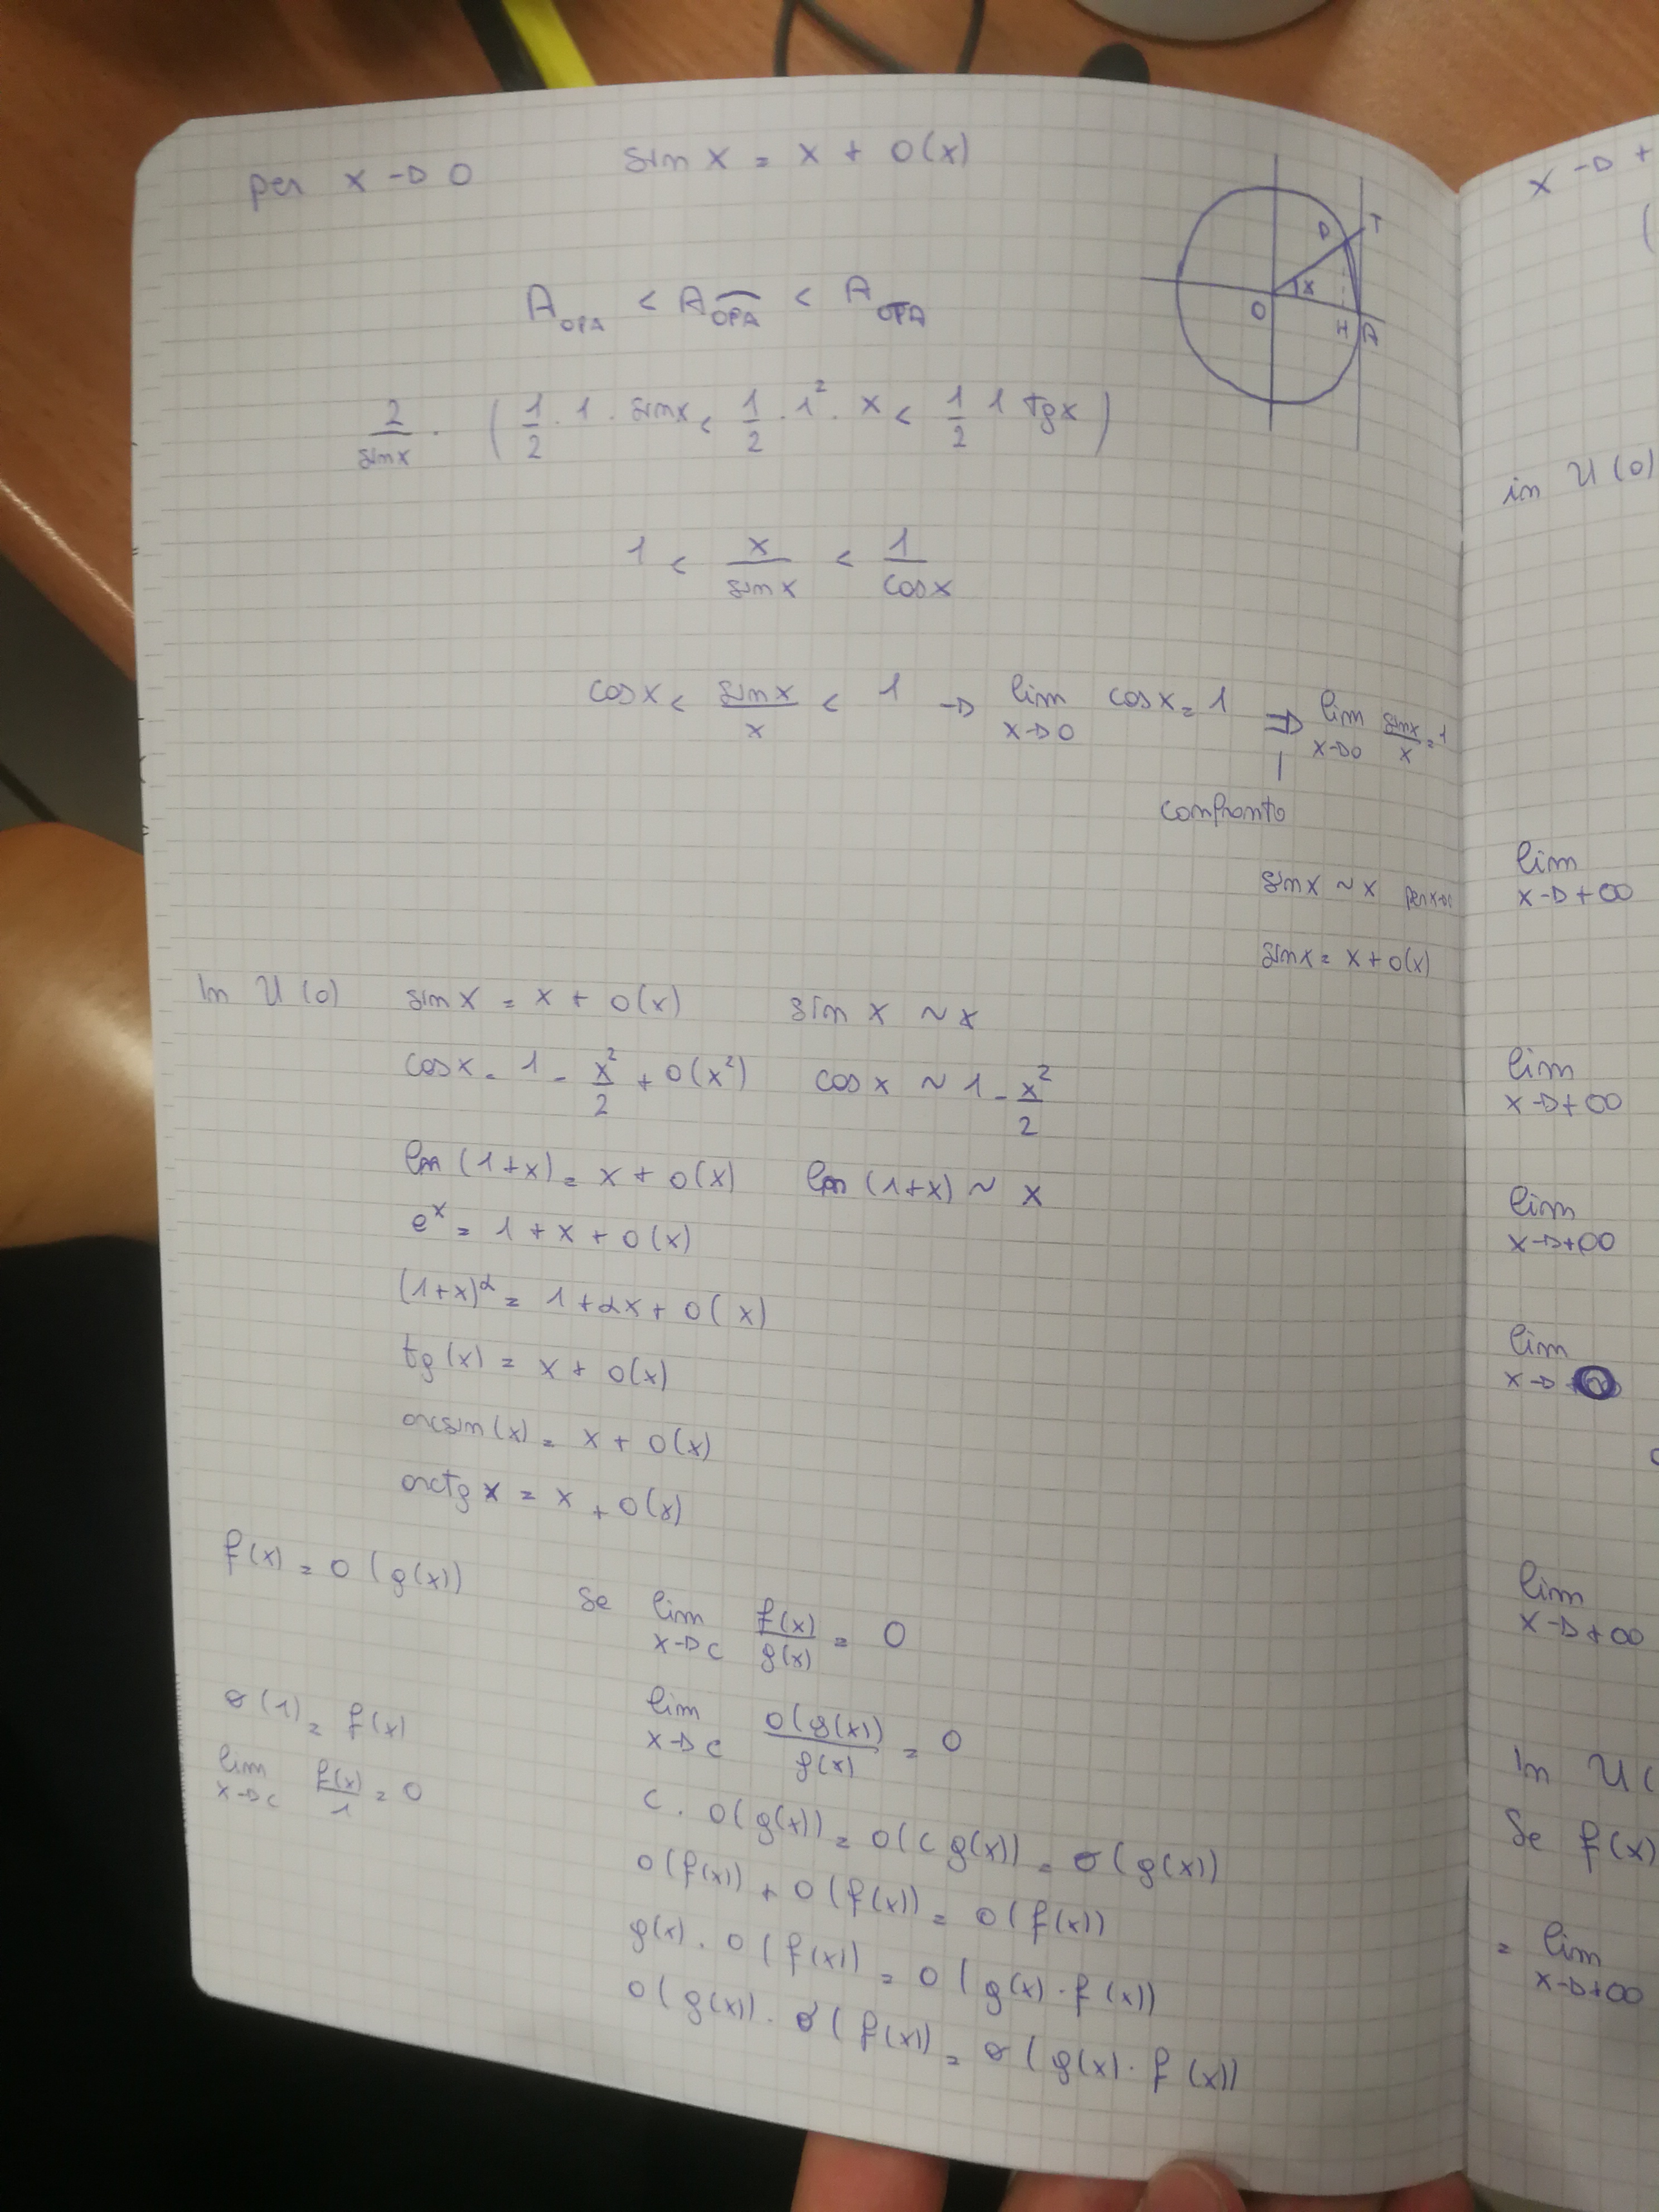 per x → 0 sin x = x + o(x)
P T
x
O H A
A_OPA < A_O͡PA < A_OTA
2/sinx · (1/2 · 1 · sinx < 1/2 · 1² · x < 1/2 1 tgx)
1 < x/sinx < 1/cosx
cosx < sinx/x < 1 → lim x→0 cosx = 1 ⇒ lim x→0 sinx/x = 1
confronto
sinx ~ x
sinx = x + o(x)
In U(0) sin x = x + o(x) sin x ~ x
cosx = 1 - x²/2 + o(x²) cos x ~ 1 - x²/2
ln(1+x) = x + o(x) ln(1+x) ~ x
e^x = 1 + x + o(x)
(1+x)^α = 1 + αx + o(x)
tg(x) = x + o(x)
arcsin(x) = x + o(x)
arctg x = x + o(x)
f(x) = o(g(x)) Se lim x→c f(x)/g(x) = 0
o(1) = f(x) lim x→c o(g(x))/g(x) = 0
lim x→c f(x)/1 = 0
c · o(g(x)) = o(c g(x)) = o(g(x))
o(f(x)) + o(f(x)) = o(f(x))
g(x) · o(f(x)) = o(g(x) · f(x))
o(g(x)) · o(f(x)) = o(g(x) · f(x))
x → +
(
in U(0)
lim x→+∞
lim x→+∞
lim x→+∞
lim x→
lim x→+∞
In U(
Se f(x)
= lim x→+∞